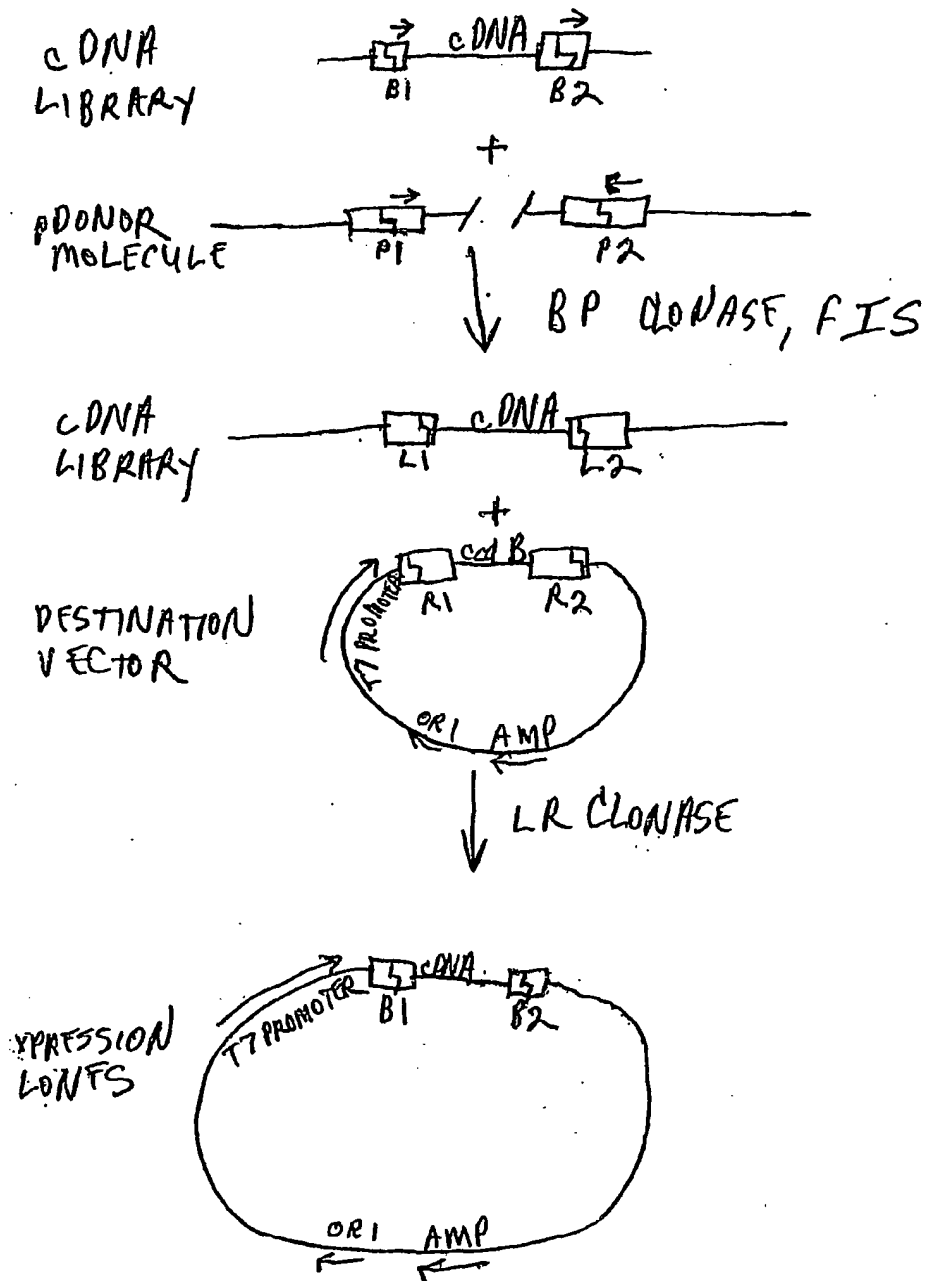 cDNA
LIBRARY
cDNA
B1
B2
+
pDONOR
MOLECULE
P1
P2
BP CLONASE, FIS
cDNA
LIBRARY
cDNA
L1
L2
+
DESTINATION
VECTOR
ccdB
R1
R2
T7 PROMOTER
ORI
AMP
LR CLONASE
XPRESSION
LONES
T7 PROMOTER
B1
cDNA
B2
ORI
AMP